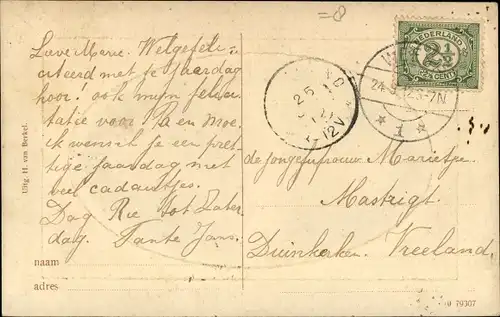 =8
Lieve Marie. Welgefeli-
citeerd met je jaardag
hoor! ook mijn felici
tatie voor Pa en Moe,
ik wensch je een pret-
tige jaardag met
veel cadeautjes.
Dag Rie tot Zater-
dag. Tante Jans.
naam
adres
Uitg. H. van Berkel.
NEDERLAND
2½
2½ CENT
24.9.12.6-7N
1
25
12V
de jongejufvrouw Marietje
Mastrigt
Duinkerken. Vreeland.
79307